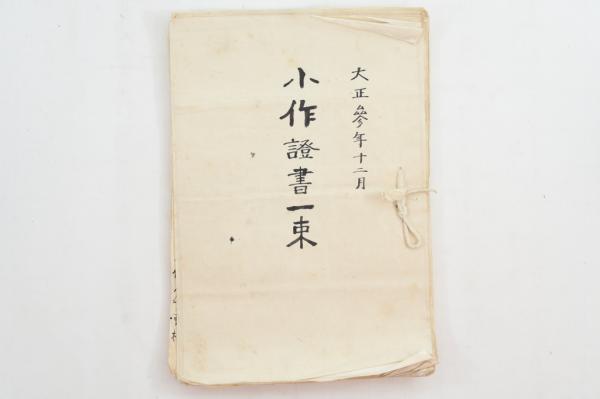 大正參年十二月
小作證書一束